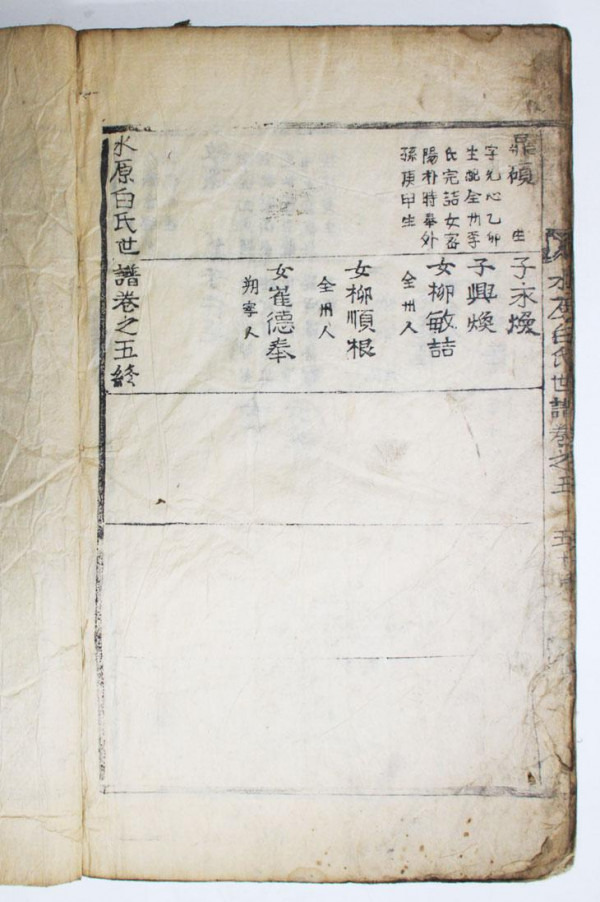 水原白氏世譜卷之五 五十
鼎碩
字允心乙卯
生配全州李
氏完喆女密
陽朴時奉外
孫庚申生
生
子永煥
子興煥
女柳敏喆
全州人
女柳順根
全州人
女崔德奉
朔寧人
水原白氏世譜卷之五終